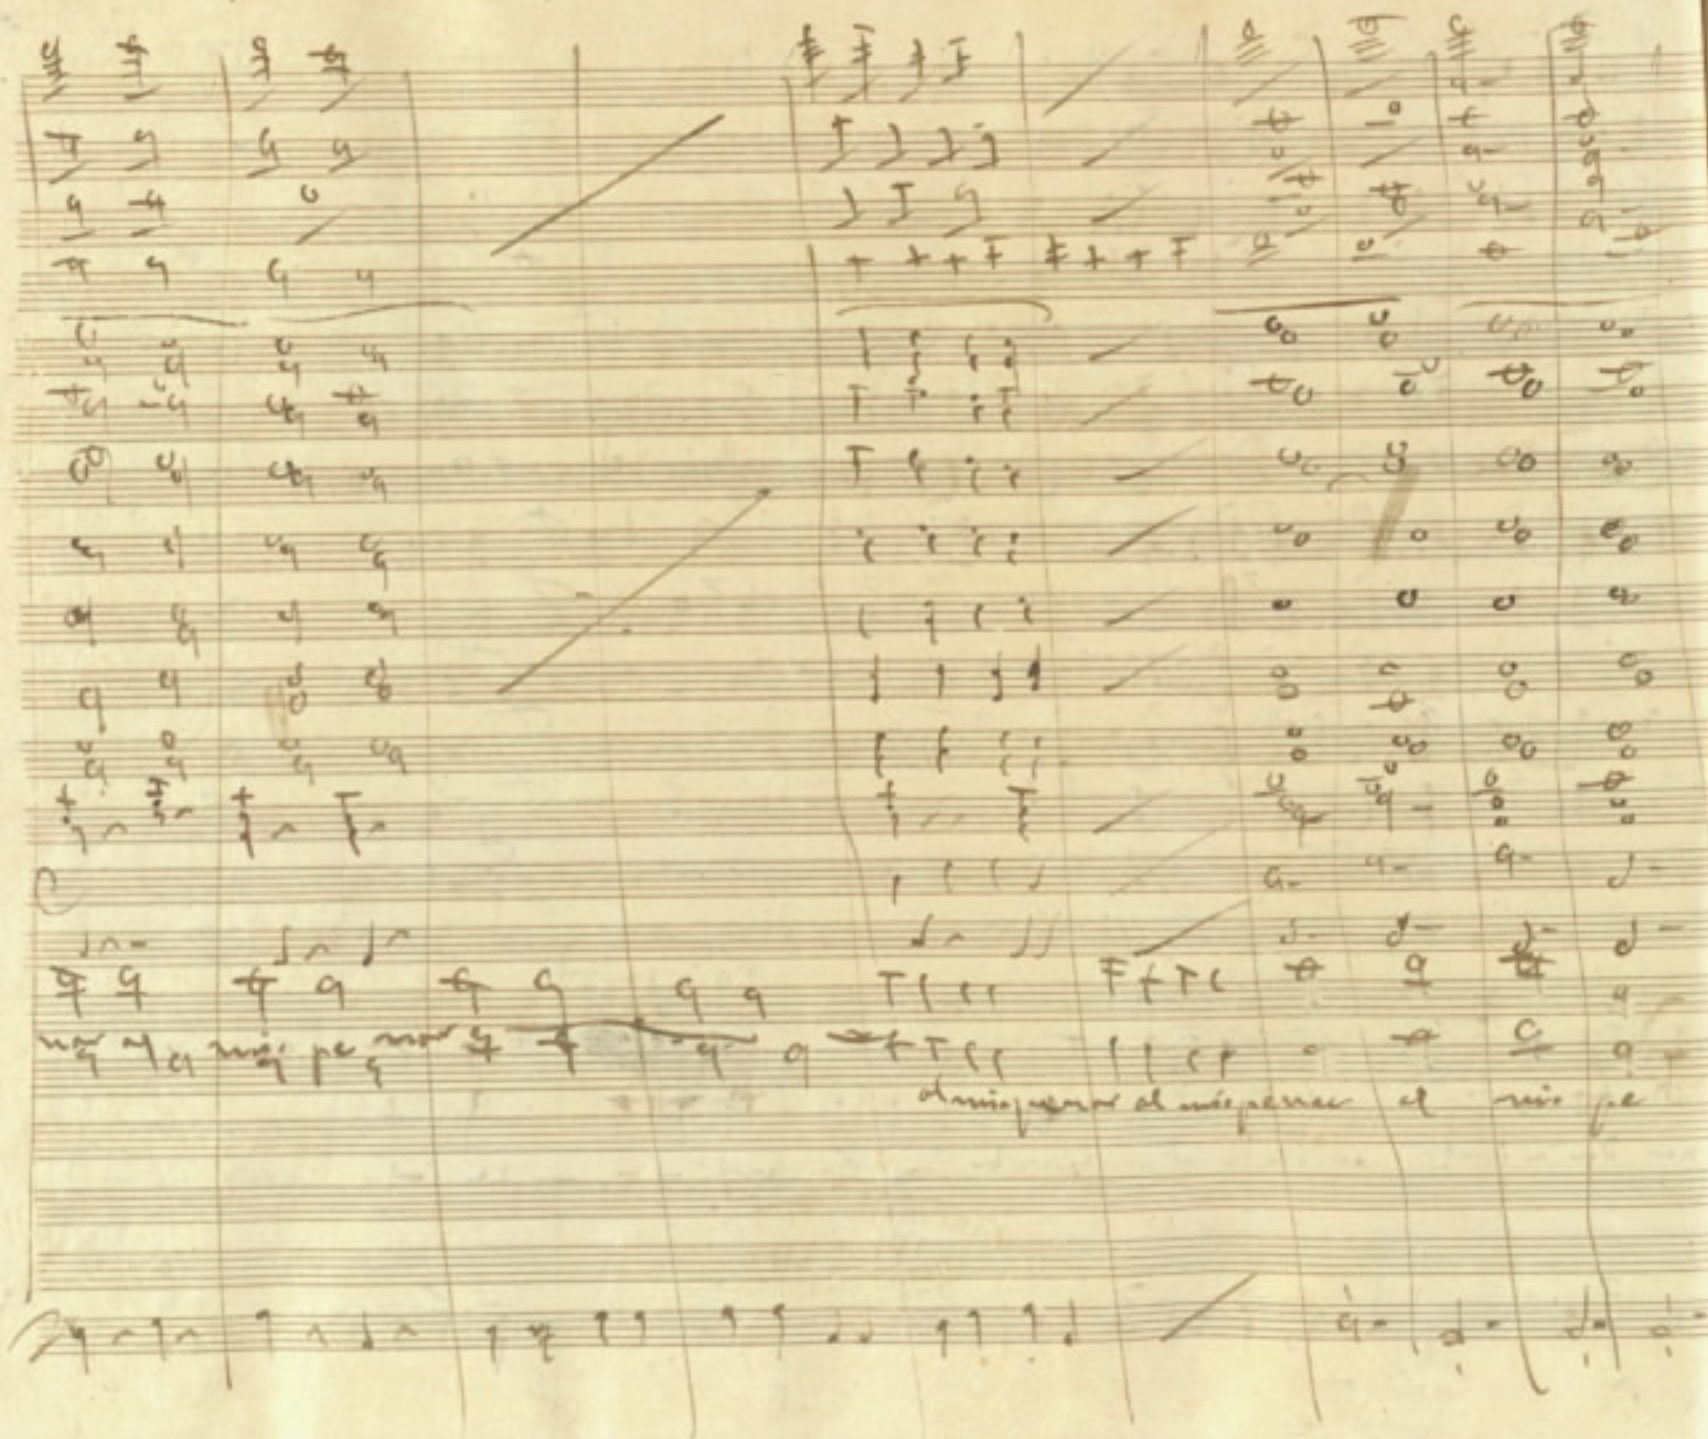 nar al mio pe nar
al mio penar al mio penar al mio pe